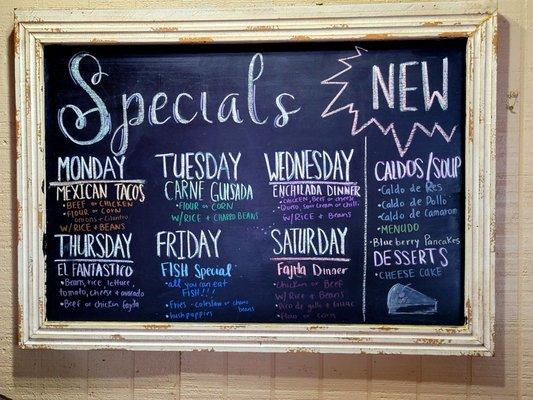 Specials
NEW
MONDAY
MEXICAN TACOS
• BEEF OR CHICKEN
• FLOUR OR CORN
onions + cilantro
W/ RICE + BEANS
TUESDAY
CARNE GUISADA
• FLOUR OR CORN
W/ RICE + CHARRO BEANS
WEDNESDAY
ENCHILADA DINNER
• CHICKEN, BEEF or cheese
• Queso, sour cream or chili
W/ RICE + BEANS
THURSDAY
EL FANTASTICO
• Beans, rice, lettuce,
tomato, cheese + avocado
• Beef or chicken fajita
FRIDAY
FISH Special
• all you can eat
FISH!!!
• Fries - coleslaw or charro
beans
• hush puppies
SATURDAY
Fajita Dinner
• Chicken or Beef
W/ Rice + Beans
• Pico de gallo + Guac
• Flour or corn
CALDOS/SOUP
• Caldo de Res
• Caldo de Pollo
• Caldo de Camaron
• MENUDO
• Blueberry Pancakes
DESSERTS
• CHEESE CAKE